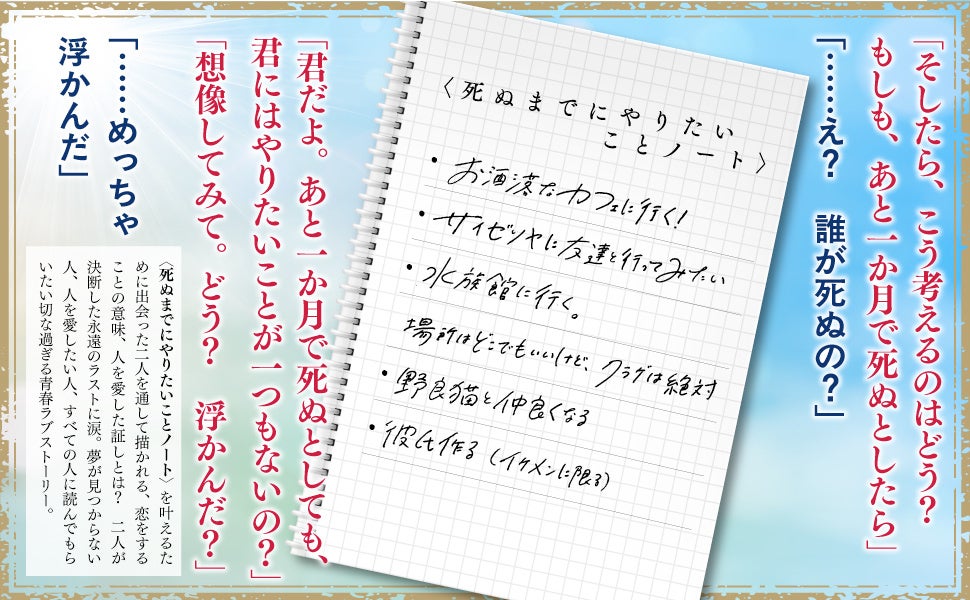 「そしたら、こう考えるのはどう?
もしも、あと一か月で死ぬとしたら」
「……え? 誰が死ぬの?」
〈死ぬまでにやりたい
ことノート〉
・お洒落なカフェに行く!
・サイゼリヤに友達と行ってみたい
・水族館に行く。
場所はどこでもいいけど、クラゲは絶対
・野良猫と仲良くなる
・彼氏作る(イケメンに限る)
「君だよ。あと一か月で死ぬとしても、
君にはやりたいことが一つもないの?」
「想像してみて。どう? 浮かんだ?」
「……めっちゃ
浮かんだ」
〈死ぬまでにやりたいことノート〉を叶えるた
めに出会った二人を通して描かれる、恋をする
ことの意味、人を愛した証しとは? 二人が
決断した永遠のラストに涙。夢が見つからない
人、人を愛したい人、すべての人に読んでもら
いたい切な過ぎる青春ラブストーリー。